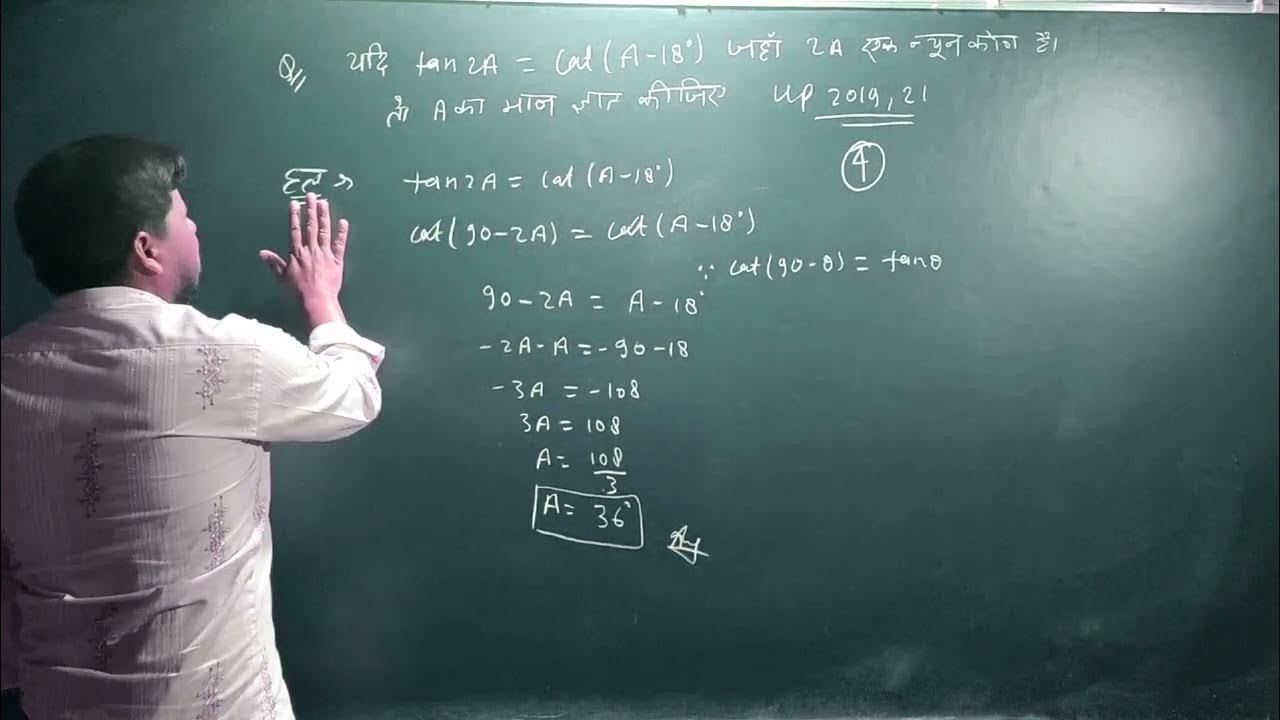 Q// यदि tan 2A = cot (A-18°) जहाँ 2A एक न्यून कोण है।
तो A का मान ज्ञात कीजिए UP 2019, 21
4
हल → tan 2A = cot (A-18°)
cot (90-2A) = cot (A-18°)
∵ cot (90-θ) = tanθ
90-2A = A-18°
-2A-A = -90-18
-3A = -108
3A = 108
A = 108/3
A = 36°
Ans